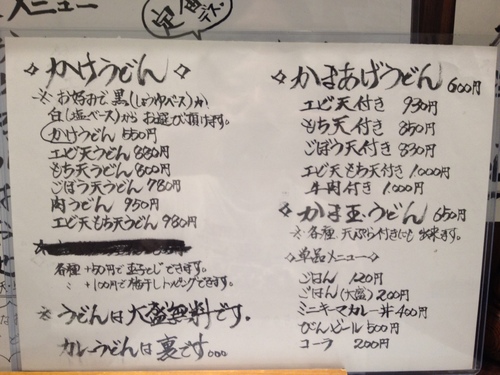 メニュー
◇かけうどん◇
※お好みで黒(しょうゆベース)か
白(塩ベース)からお選び頂けます。
かけうどん 550円
エビ天うどん 880円
もち天うどん 800円
ごぼう天うどん 780円
肉うどん 950円
エビ天もち天うどん 980円
各種 +50円で玉子とじできます。
〃 +100円で梅干しトッピングできます。
※うどんは大盛無料です。
カレーうどんは裏です。。。
◇かまあげうどん 600円
エビ天付き 930円
もち天付き 850円
ごぼう天付き 830円
エビ天もち天付き 1000円
牛肉付き 1000円
◇かま玉うどん 650円
※各種 天ぷら付きにも出来ます。
◇単品メニュー◇
ごはん 120円
ごはん(大盛) 200円
ミニキーマカレー丼 400円
びんビール 500円
コーラ 200円